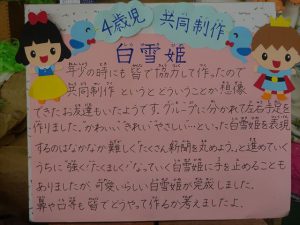 4歳児 共同制作
白雪姫
年少の時にも皆で協力して作ったので
共同制作というとどういうことか想像
できたお友達もいたようです。グループに分かれて左右手足を
作りました。かわいい きれい やさしい…といった白雪姫を表現
するのはなかなか難しく「たくさん新聞を丸めよう。」と進めていく
うちに強くたくましくなっていく白雪姫に手を止めることも
ありましたが、可愛いらしい白雪姫が完成しました。
幕や台等も皆でどうやって作るか考えましたよ。